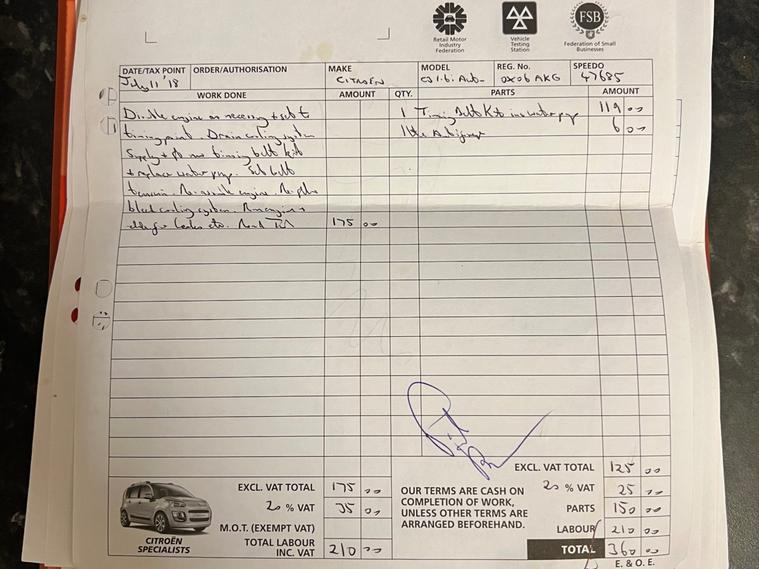 Retail Motor
Industry
Federation
Vehicle
Testing
Station
FSB
Federation of Small
Businesses
DATE/TAX POINT ORDER/AUTHORISATION MAKE MODEL REG. No. SPEEDO
July 11 '18 CITROEN C3 1.6i Auto OX06 AKG 47685
WORK DONE AMOUNT QTY. PARTS AMOUNT
engine as necessary + set 1 Timing Belt Kit inc water pump 119 00
timing point. Drain cooling system 1 ltr Antifreeze 6 00
Supply + fit new timing belt kit
+ replace water pump. Set belt
tension. Re-assemble engine. Re-fill +
bleed cooling system. Run engine +
leaks etc. 175 00
EXCL. VAT TOTAL 175 00
20 % VAT 35 00
M.O.T. (EXEMPT VAT)
TOTAL LABOUR
INC. VAT 210 00
CITROËN
SPECIALISTS
OUR TERMS ARE CASH ON
COMPLETION OF WORK,
UNLESS OTHER TERMS ARE
ARRANGED BEFOREHAND.
EXCL. VAT TOTAL 125 00
20 % VAT 25 00
PARTS 150 00
LABOUR 210 00
TOTAL 360 00
E. & O. E.